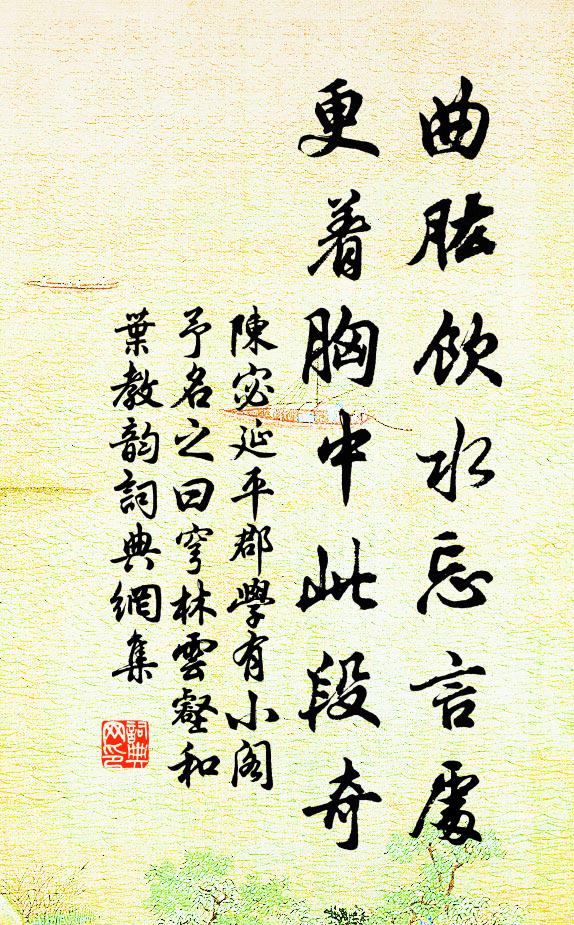 曲肱飲水忘言處
更着胸中此段奇
陳宓延平郡學有小閣
予名之曰穹林雲壑和
葉教韵詞典網集
詞典網印